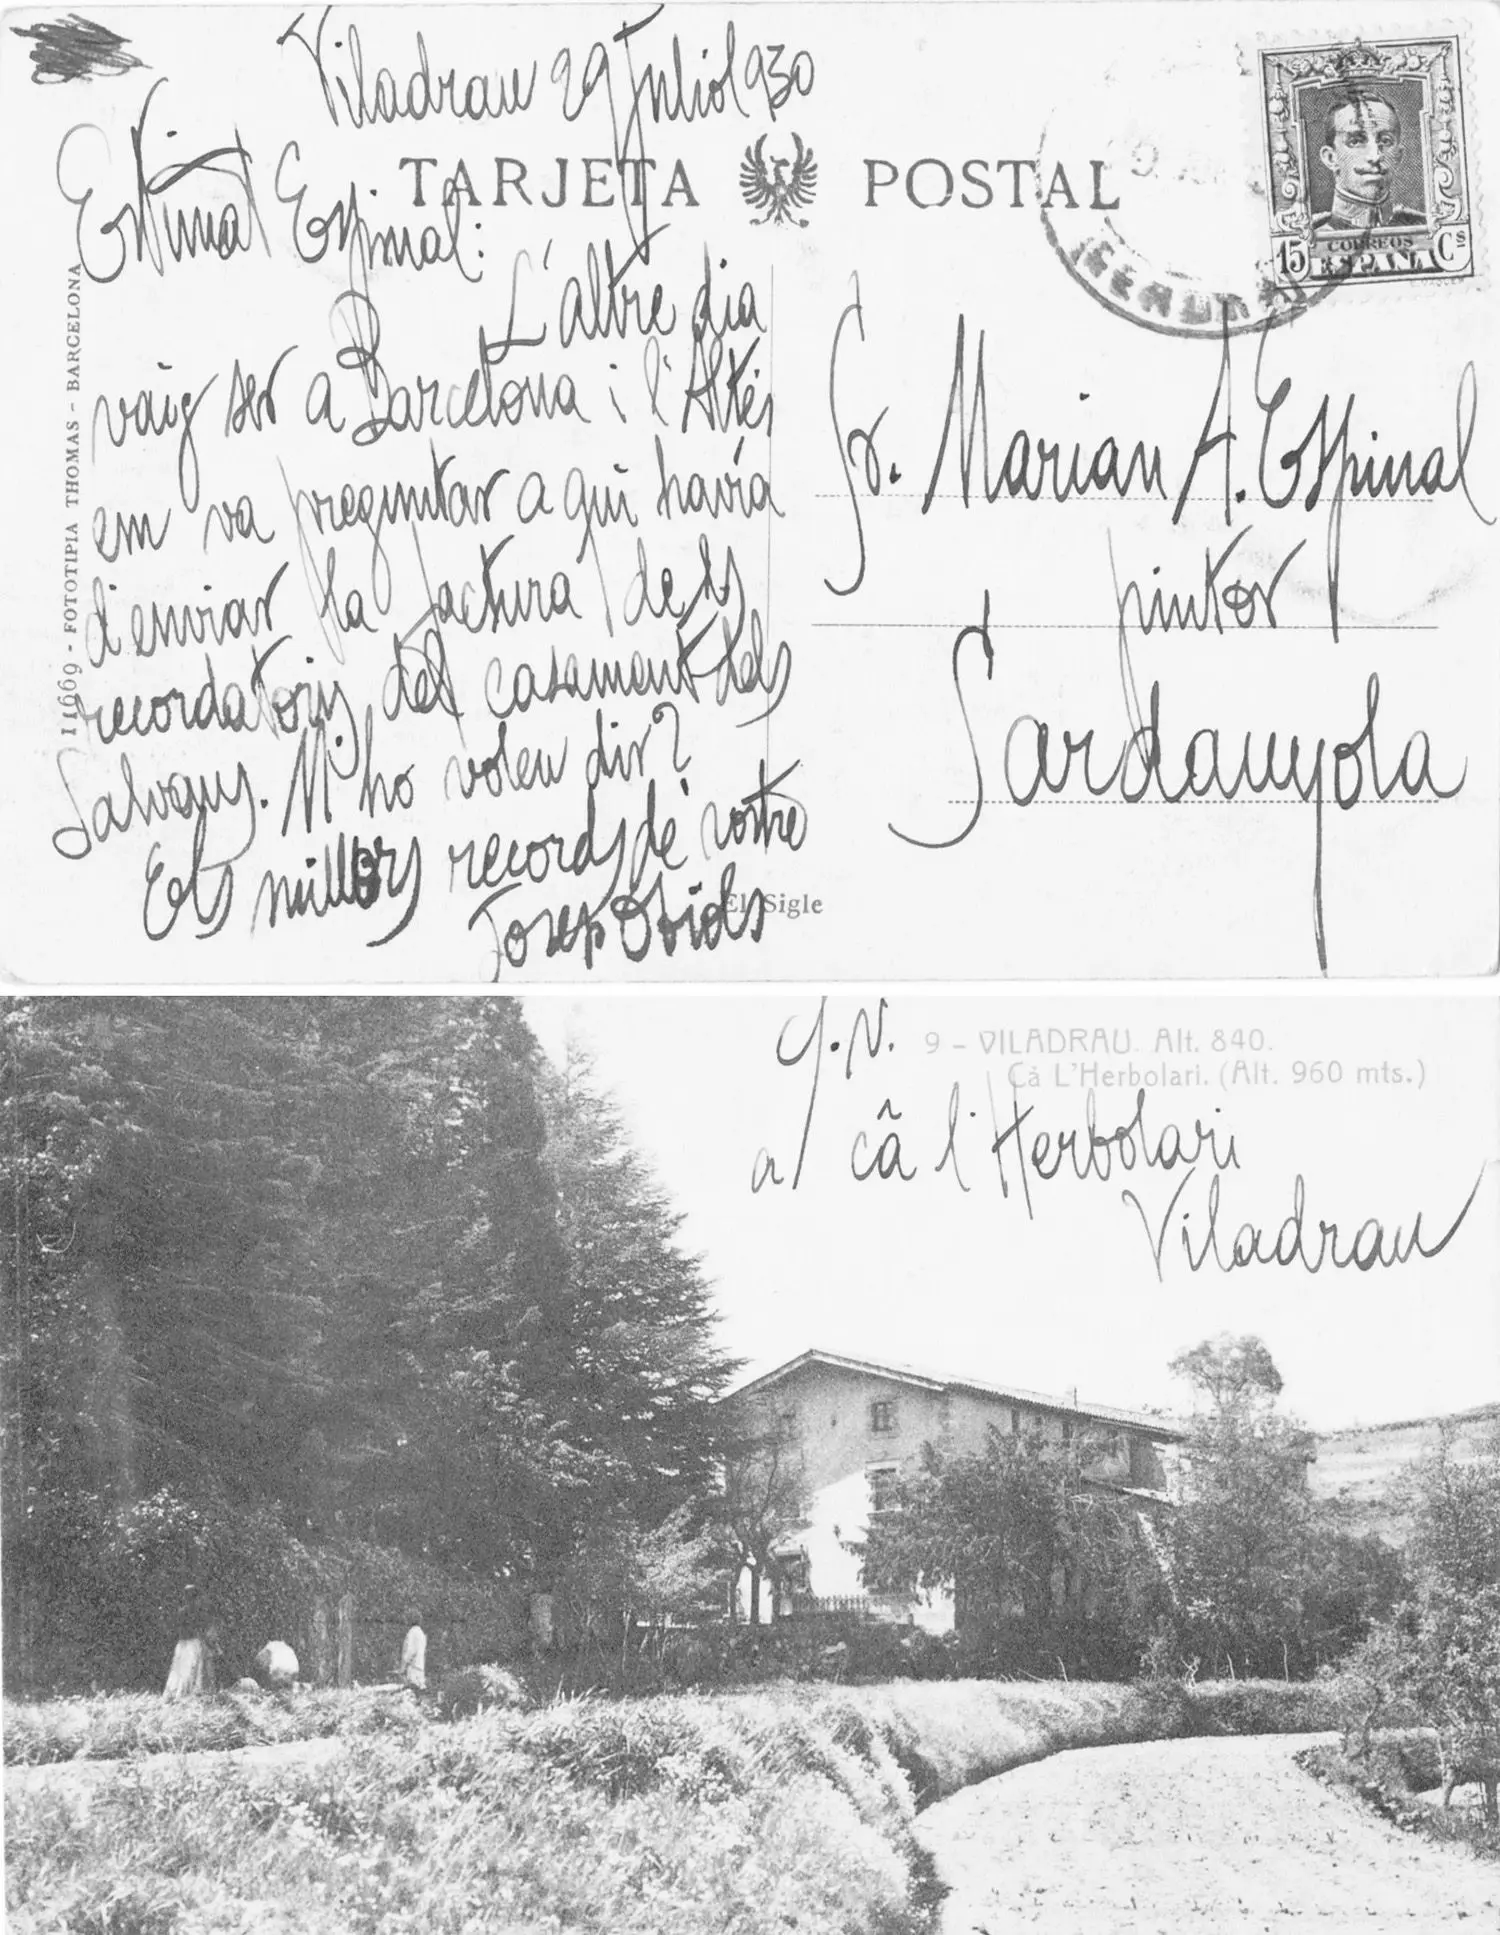 Viladrau 29 Juliol 930
TARJETA POSTAL
Estimat Espinal:
L'altre dia
vaig ser a Barcelona i l'Altés
em va preguntar a qui havía
d'enviar la factura dels
recordatoris del casament dels
Salvans. M'ho voleu dir?
Els millors records de vostre
Josep Obiols
El Sigle
11669 - FOTOTIPIA THOMAS - BARCELONA
CORREOS
ESPAÑA
15 Cs
Sr. Marian A. Espinal
pintor
Sardanyola
9 - VILADRAU. Alt. 840.
Cà L'Herbolari. (Alt. 960 mts.)
a/ câ l'Herbolari
Viladrau